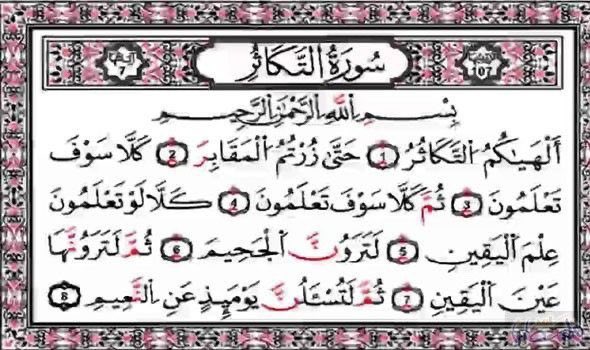 107
سُورَةُ التَّكَاثُرِ
7
بِسْمِ اللَّهِ الرَّحْمَٰنِ الرَّحِيمِ
أَلْهَىٰكُمُ ٱلتَّكَاثُرُ 1 حَتَّىٰ زُرْتُمُ ٱلْمَقَابِرَ 2 كَلَّا سَوْفَ
تَعْلَمُونَ 3 ثُمَّ كَلَّا سَوْفَ تَعْلَمُونَ 4 كَلَّا لَوْ تَعْلَمُونَ
عِلْمَ ٱلْيَقِينِ 5 لَتَرَوُنَّ ٱلْجَحِيمَ 6 ثُمَّ لَتَرَوُنَّهَا
عَيْنَ ٱلْيَقِينِ 7 ثُمَّ لَتُسْـَٔلُنَّ يَوْمَئِذٍ عَنِ ٱلنَّعِيمِ 8